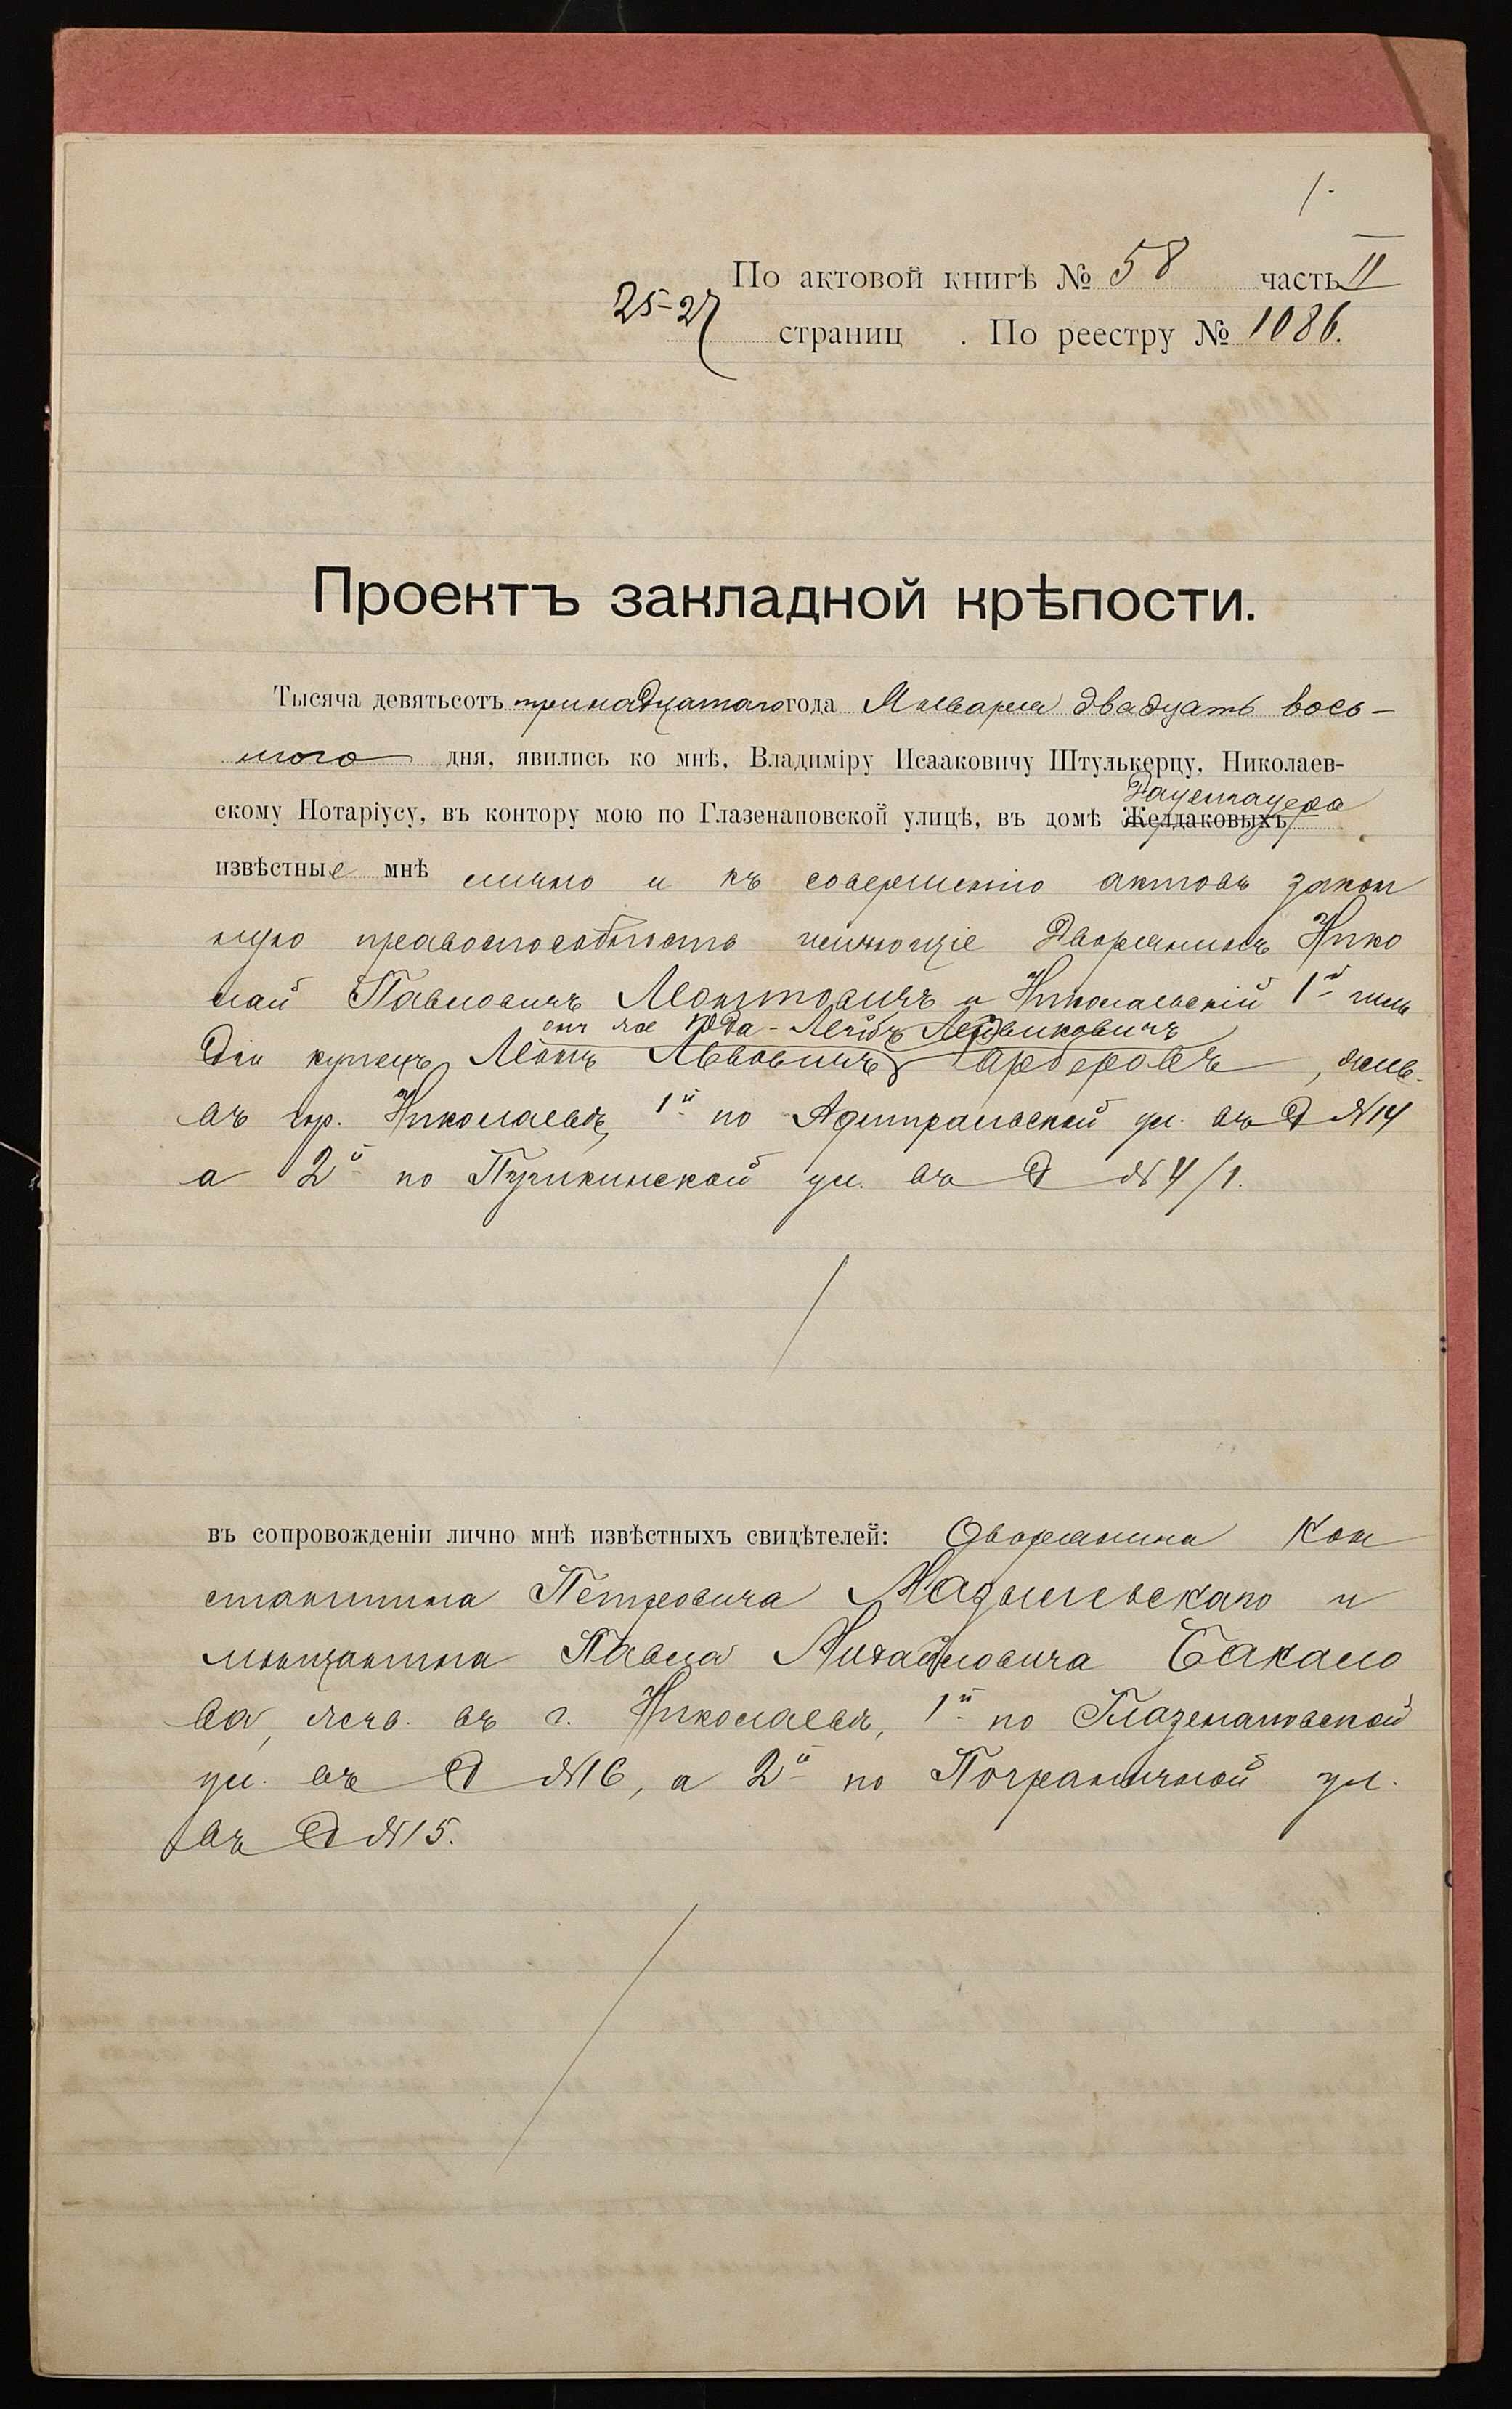 1.
По актовой книгѣ № 58 часть II
25-27 страниц . По реестру № 1086.
Проектъ закладной крѣпости.
Тысяча девятьсотъ тринадцатаго года Января двадцать вось-
мого дня, явились ко мнѣ, Владиміру Исааковичу Штулькерцу, Николаев-
скому Нотаріусу, въ контору мою по Глазенаповской улицѣ, въ домѣ Желдаковыхъ
извѣстные мнѣ лично и къ совершенію актовъ закон
ную правоспособность имѣющіе Дворянинъ Нико
лай Павловичъ Леонтовичъ и Николаевскій 1й гиль
онъ же Юда-Лейбъ
діи купецъ Леонъ Львовичъ Гарберовъ, жив.
въ гор. Николаевѣ, 1й по Адмиральской ул. въ д №14
а 2й по Пушкинской ул. въ д №4/1.
въ сопровожденіи лично мнѣ извѣстныхъ свидѣтелей: Дворянина Кон
стантина Петровича и
мѣщанина Павла Михайловича Бакало
ва, жив. въ г. Николаевѣ, 1й по Глазенаповской
ул. въ д №16, а 2й по Пограничной ул.
въ д №15.